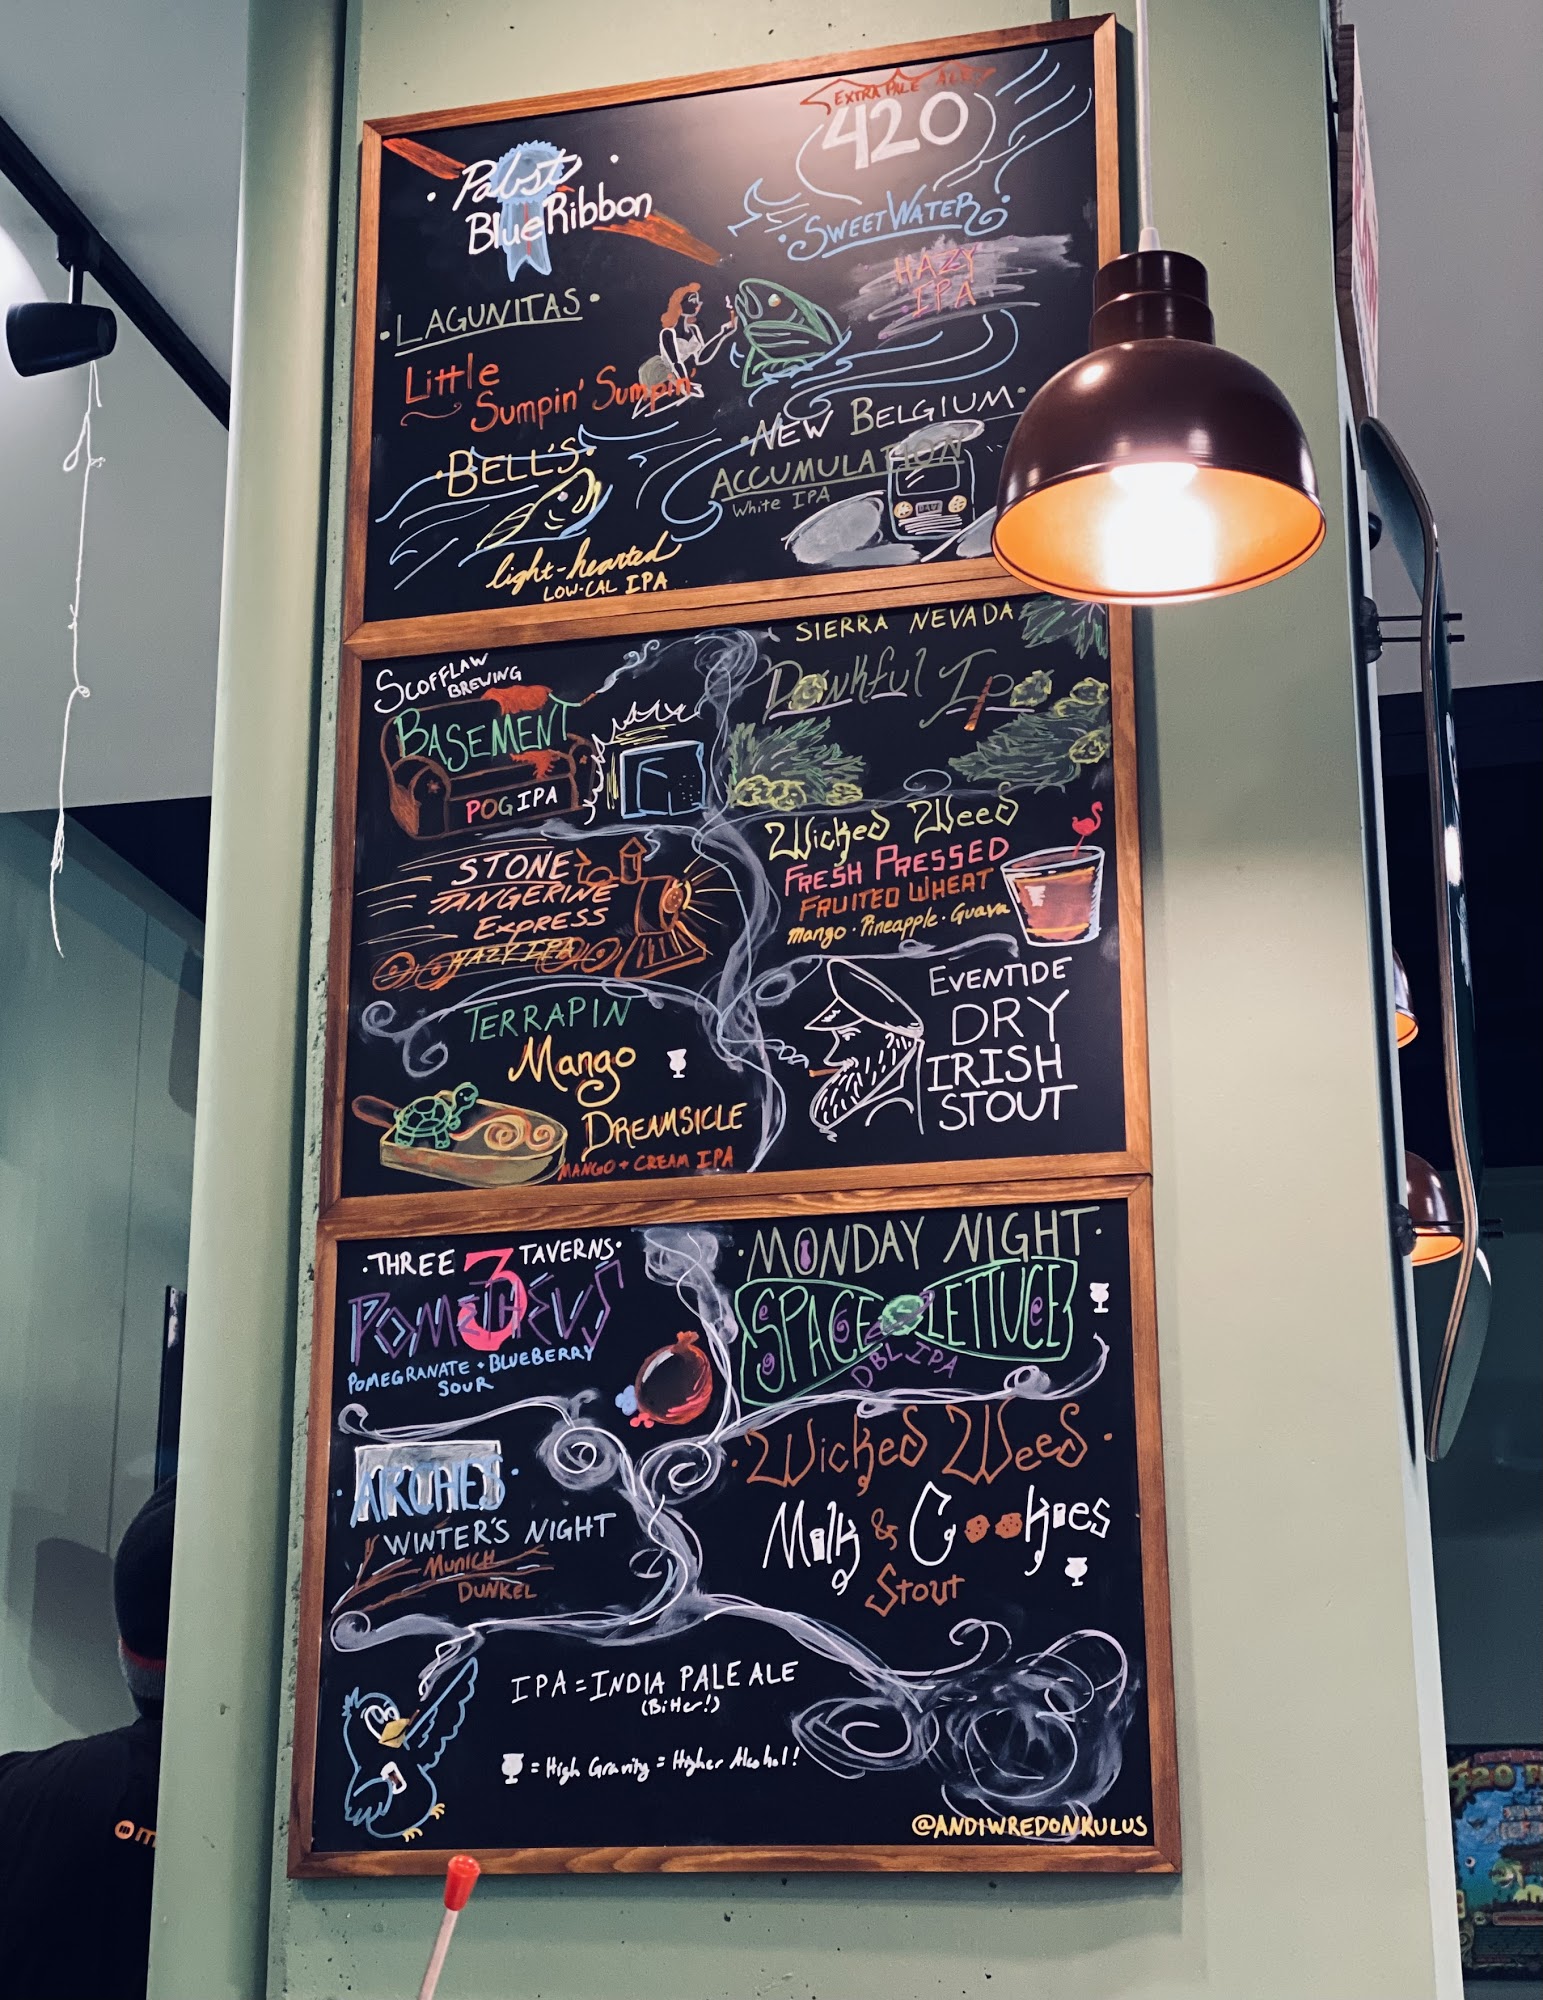 Pabst
Blue Ribbon
EXTRA PALE ALE
420
SWEETWATER
HAZY
IPA
LAGUNITAS
Little
Sumpin' Sumpin'
NEW BELGIUM
ACCUMULATION
White IPA
BELL'S
light-hearted
LOW-CAL IPA
SCOFFLAW
BREWING
BASEMENT
POG IPA
SIERRA NEVADA
Dankful IPA
STONE
TANGERINE
EXPRESS
HAZY IPA
Wicked Weed
FRESH PRESSED
FRUITED WHEAT
Mango · Pineapple · Guava
TERRAPIN
Mango
DREAMSICLE
MANGO + CREAM IPA
EVENTIDE
DRY
IRISH
STOUT
THREE 3 TAVERNS
POMETHEUS
POMEGRANATE + BLUEBERRY
SOUR
MONDAY NIGHT
SPACE LETTUCE
DBL IPA
ARCHES
WINTER'S NIGHT
MUNICH
DUNKEL
Wicked Weed
Milk & Cookies
Stout
IPA = INDIA PALE ALE
(Bitter!)
= High Gravity = Higher Alcohol!
@ANDIWREDONKULUS